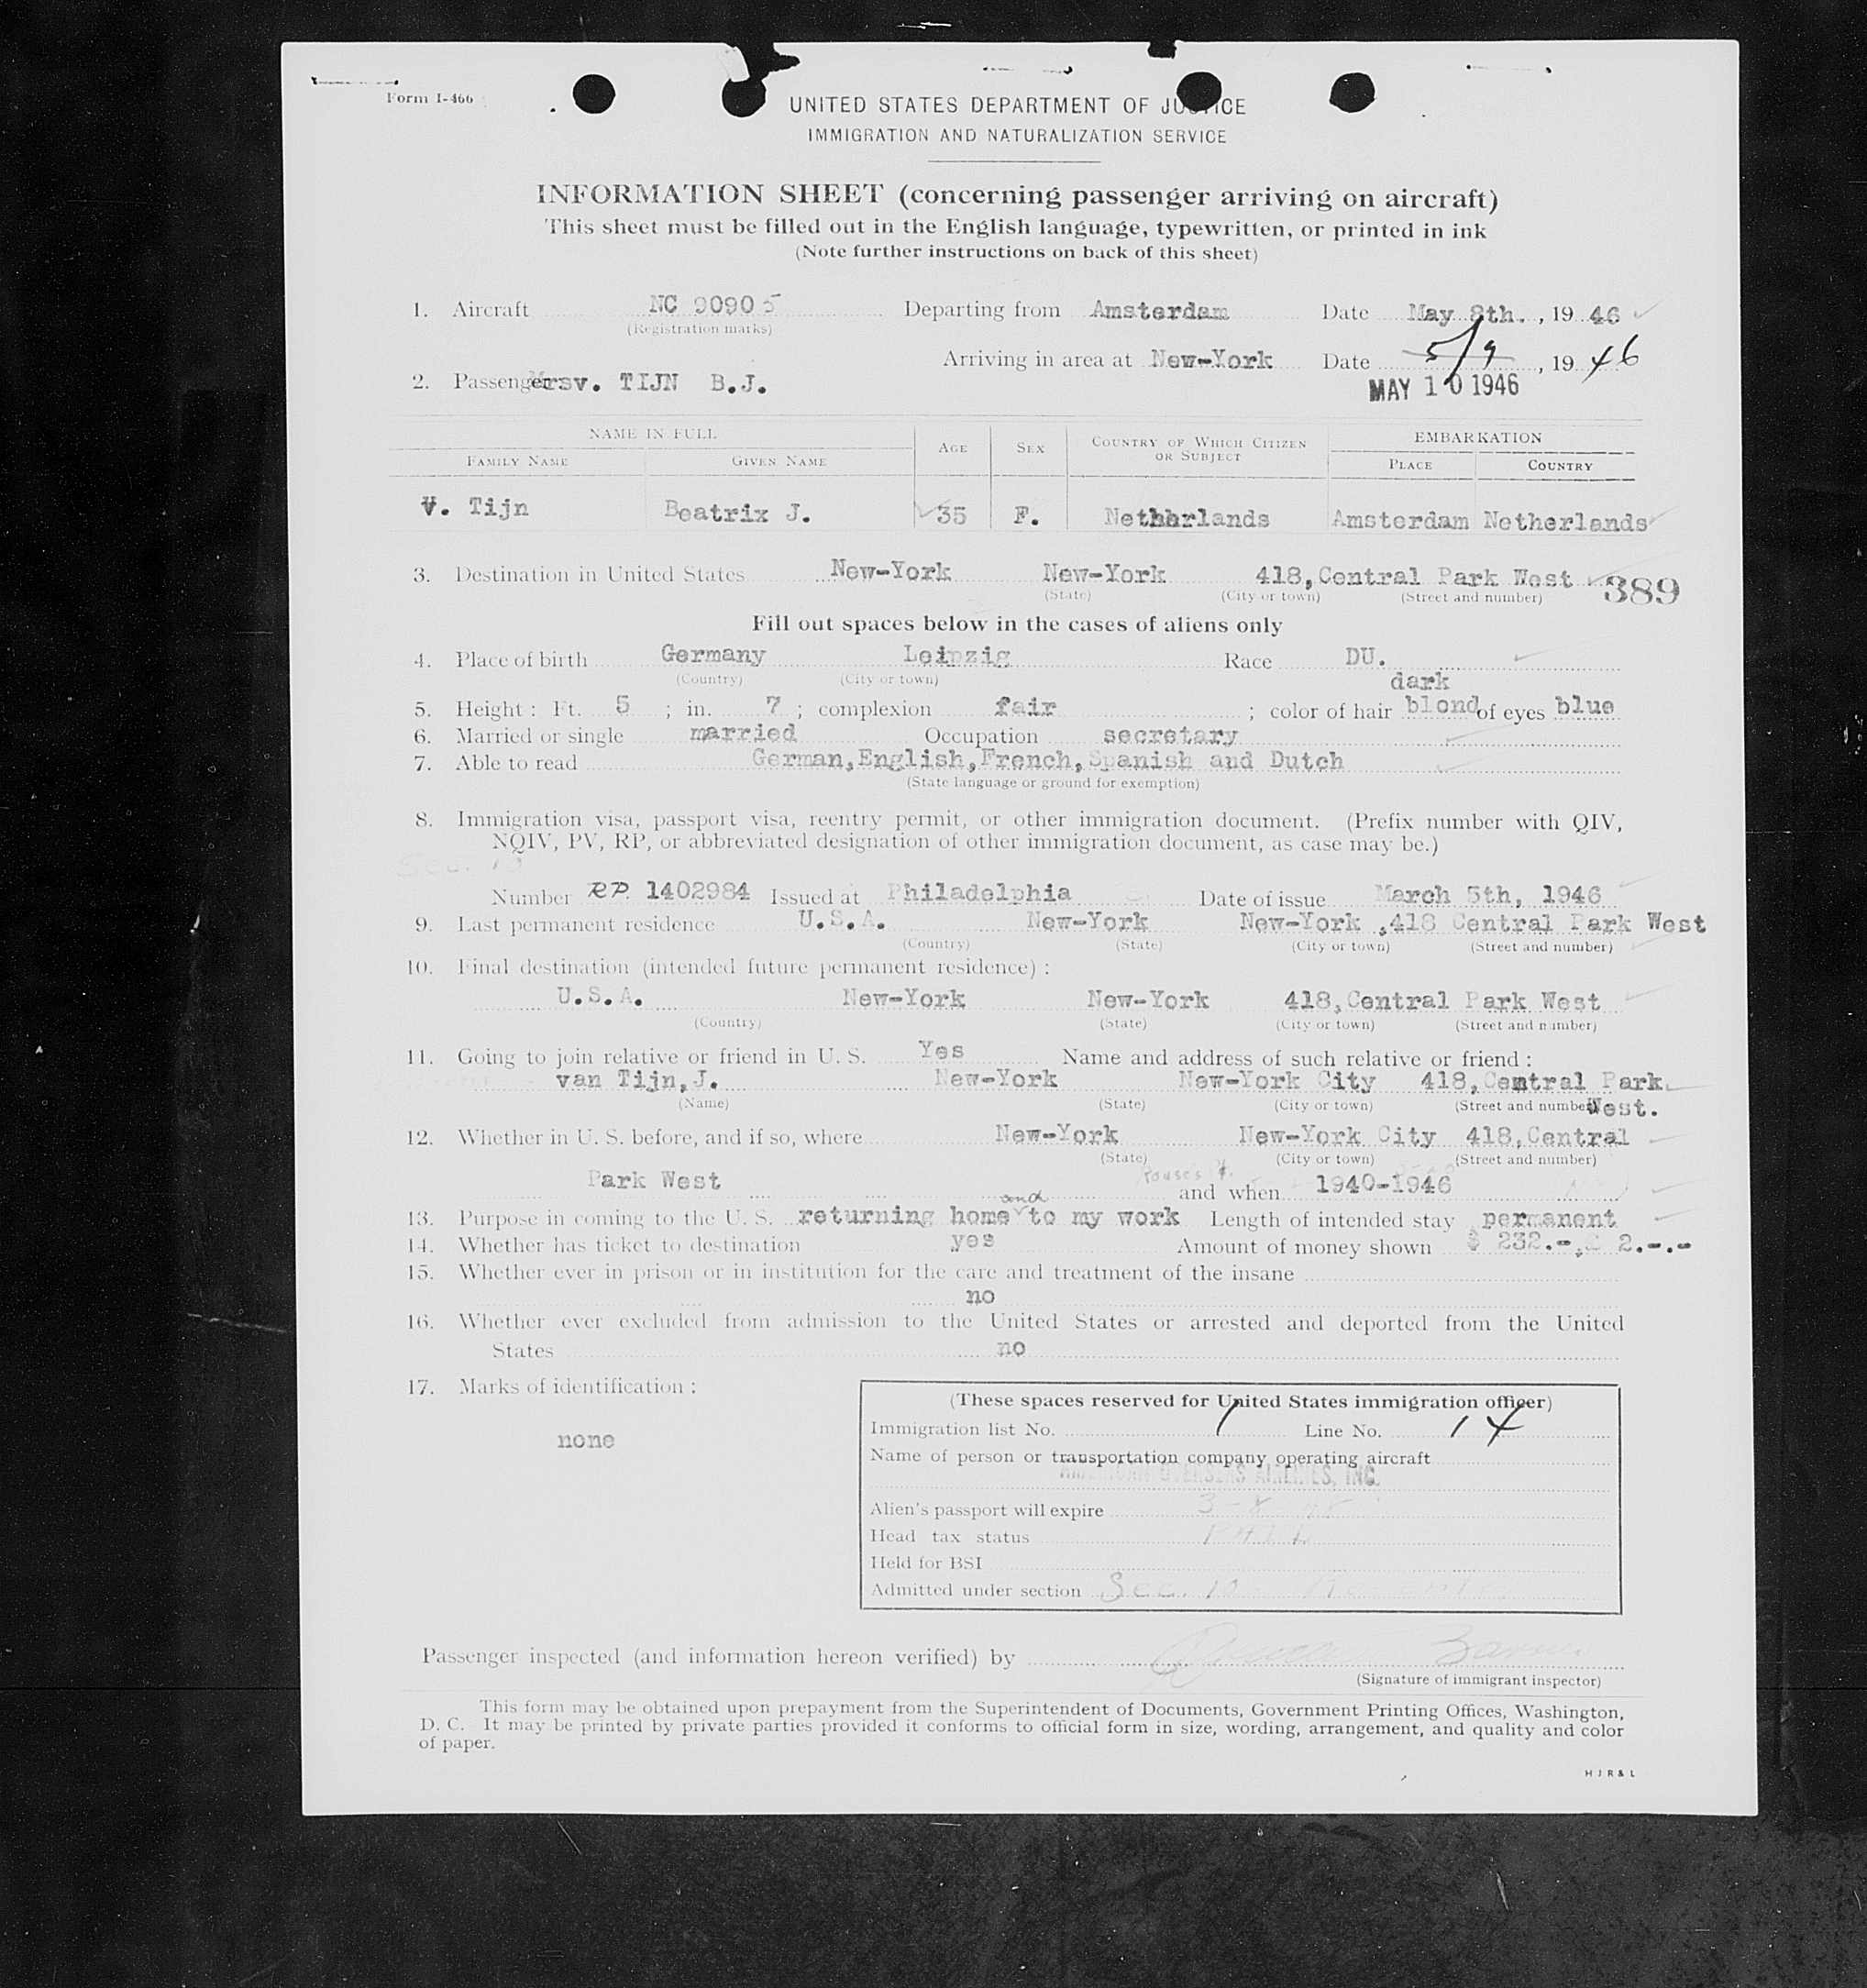 Form I-466
UNITED STATES DEPARTMENT OF JUSTICE
IMMIGRATION AND NATURALIZATION SERVICE
INFORMATION SHEET (concerning passenger arriving on aircraft)
This sheet must be filled out in the English language, typewritten, or printed in ink
(Note further instructions on back of this sheet)
1. Aircraft NC 90905 Departing from Amsterdam Date May 8th. , 19 46
(Registration marks)
Arriving in area at New-York Date 5/9 , 19 46
2. Passenger Mrsv. TIJN B.J. MAY 10 1946
NAME IN FULL AGE SEX COUNTRY OF WHICH CITIZEN OR SUBJECT EMBARKATION
FAMILY NAME GIVEN NAME PLACE COUNTRY
V. Tijn Beatrix J. 35 F. Netherlands Amsterdam Netherlands
3. Destination in United States New-York New-York 418,Central Park West 389
(State) (City or town) (Street and number)
Fill out spaces below in the cases of aliens only
4. Place of birth Germany Leipzig Race DU.
(Country) (City or town)
dark
5. Height : Ft. 5 ; in. 7 ; complexion fair ; color of hair blond of eyes blue
6. Married or single married Occupation secretary
7. Able to read German,English,French,Spanish and Dutch
(State language or ground for exemption)
8. Immigration visa, passport visa, reentry permit, or other immigration document. (Prefix number with QIV,
NQIV, PV, RP, or abbreviated designation of other immigration document, as case may be.)
Number RP. 1402984 Issued at Philadelphia Date of issue March 5th, 1946
9. Last permanent residence U.S.A. New-York New-York ,418 Central Park West
(Country) (State) (City or town) (Street and number)
10. Final destination (intended future permanent residence) :
U.S.A. New-York New-York 418,Central Park West
(Country) (State) (City or town) (Street and number)
11. Going to join relative or friend in U. S. Yes Name and address of such relative or friend :
van Tijn,J. New-York New-York City 418,Central Park
(Name) (State) (City or town) (Street and number) West.
12. Whether in U. S. before, and if so, where New-York New-York City 418,Central
(State) (City or town) (Street and number)
Park West and when 1940-1946
and
13. Purpose in coming to the U. S. returning home to my work Length of intended stay permanent
14. Whether has ticket to destination yes Amount of money shown $ 232.-,£ 2.-.-
15. Whether ever in prison or in institution for the care and treatment of the insane
no
16. Whether ever excluded from admission to the United States or arrested and deported from the United
States no
17. Marks of identification :
none
(These spaces reserved for United States immigration officer)
Immigration list No. 1 Line No. 14
Name of person or transportation company operating aircraft
AMERICAN OVERSEAS AIRLINES, INC.
Alien's passport will expire
Head tax status
Held for BSI
Admitted under section Sec. 10
Passenger inspected (and information hereon verified) by
(Signature of immigrant inspector)
This form may be obtained upon prepayment from the Superintendent of Documents, Government Printing Offices, Washington,
D. C. It may be printed by private parties provided it conforms to official form in size, wording, arrangement, and quality and color
of paper.
H J R & L